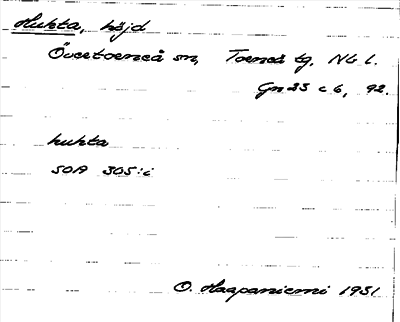 Huhta, höjd
Övertorneå sn, Torneå tg, Nb l.
Gn 25 c 6, 92.
huhta
SOA 305:i
O. Haapaniemi 1931